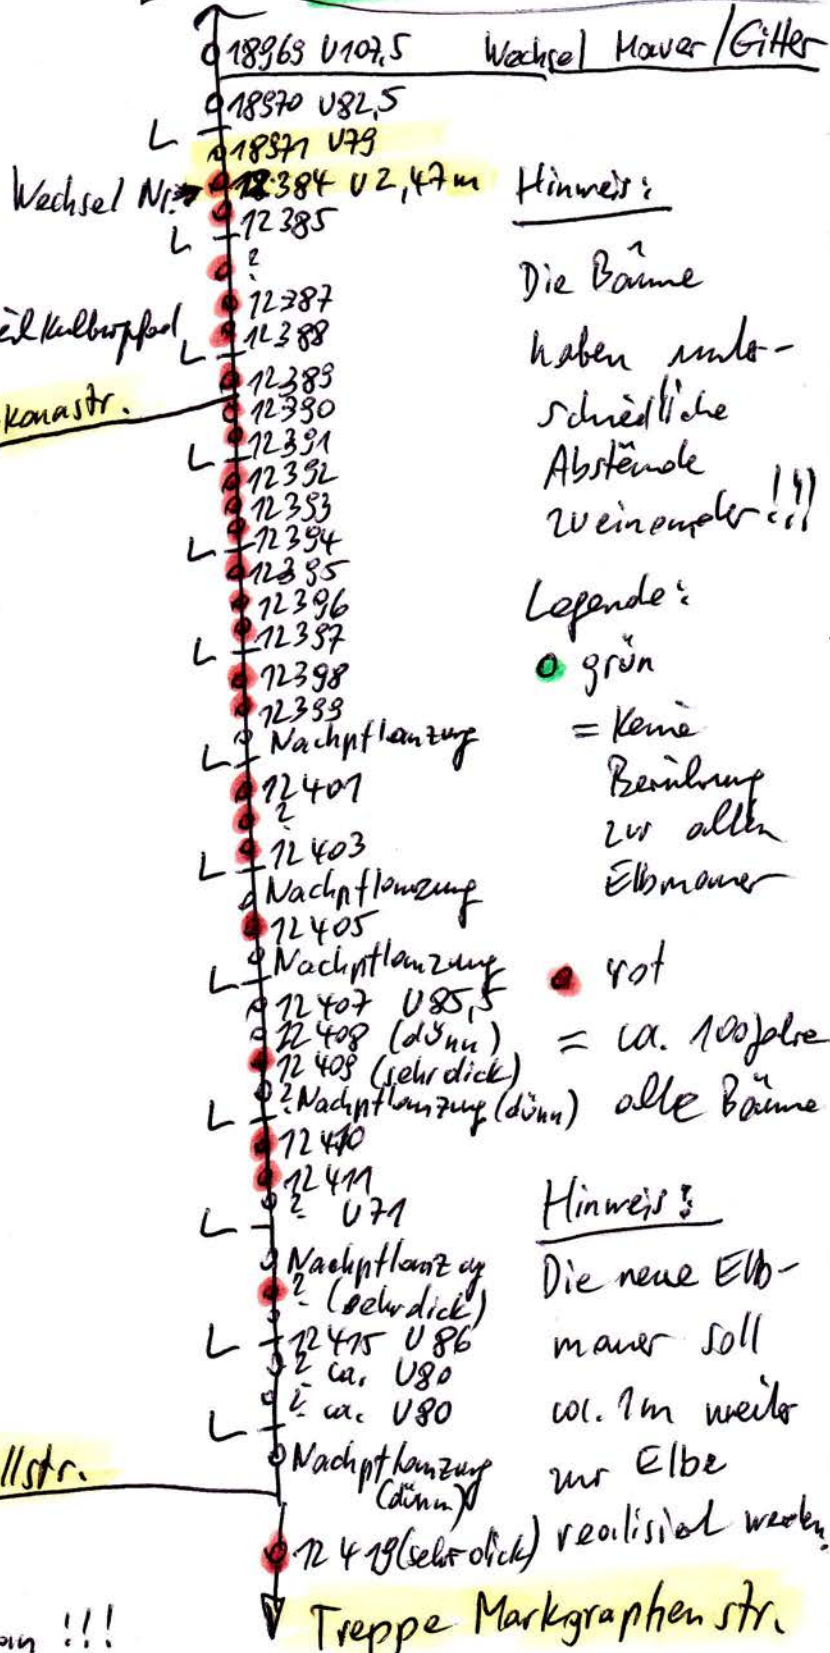 18969 U107,5 Wechsel Mauer/Gitter
18970 U82,5
L
18971 U79
Wechsel Nr. 12384 U2,47m
12385
L
?
12387
12388
L
12389
konastr.
12390
12391
L
12392
12393
12394
L
12395
12396
12397
L
12398
12399
Nachpflanzung
L
12401
?
12403
L
Nachpflanzung
12405
Nachpflanzung
L
12407 U85,5
12408 (dünn)
12409 (sehr dick)
? Nachpflanzung (dünn)
L
12410
12411
? U71
L
Nachpflanzg
? (sehr dick)
L 12415 U86
? ca. U80
? ca. U80
L
Nachpflanzung
(dünn)
llstr.
12419 (sehr dick)
Treppe Markgraphenstr.
!!!
Hinweis:
Die Bäume
haben unter-
schiedliche
Abstände
zueinander!!!
Legende:
grün
= Keine
Berührung
zur alten
Elbmauer
rot
= ca. 100 Jahre
alte Bäume
Hinweis:
Die neue Elb-
mauer soll
ca. 1m weiter
zur Elbe
realisiert werden.